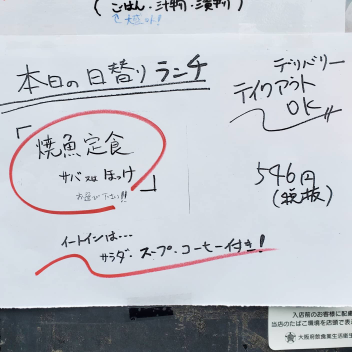 (ごはん・汁物・漬物)
本日の日替りランチ
デリバリー
テイクアウト
OK
「焼魚定食
サバ又は ほっけ
お選び下さい!!」
546円
(税抜)
イートインは…
サラダ・スープ・コーヒー付き!
入店前のお客様に配慮
当店のたばこ環境を店頭で表